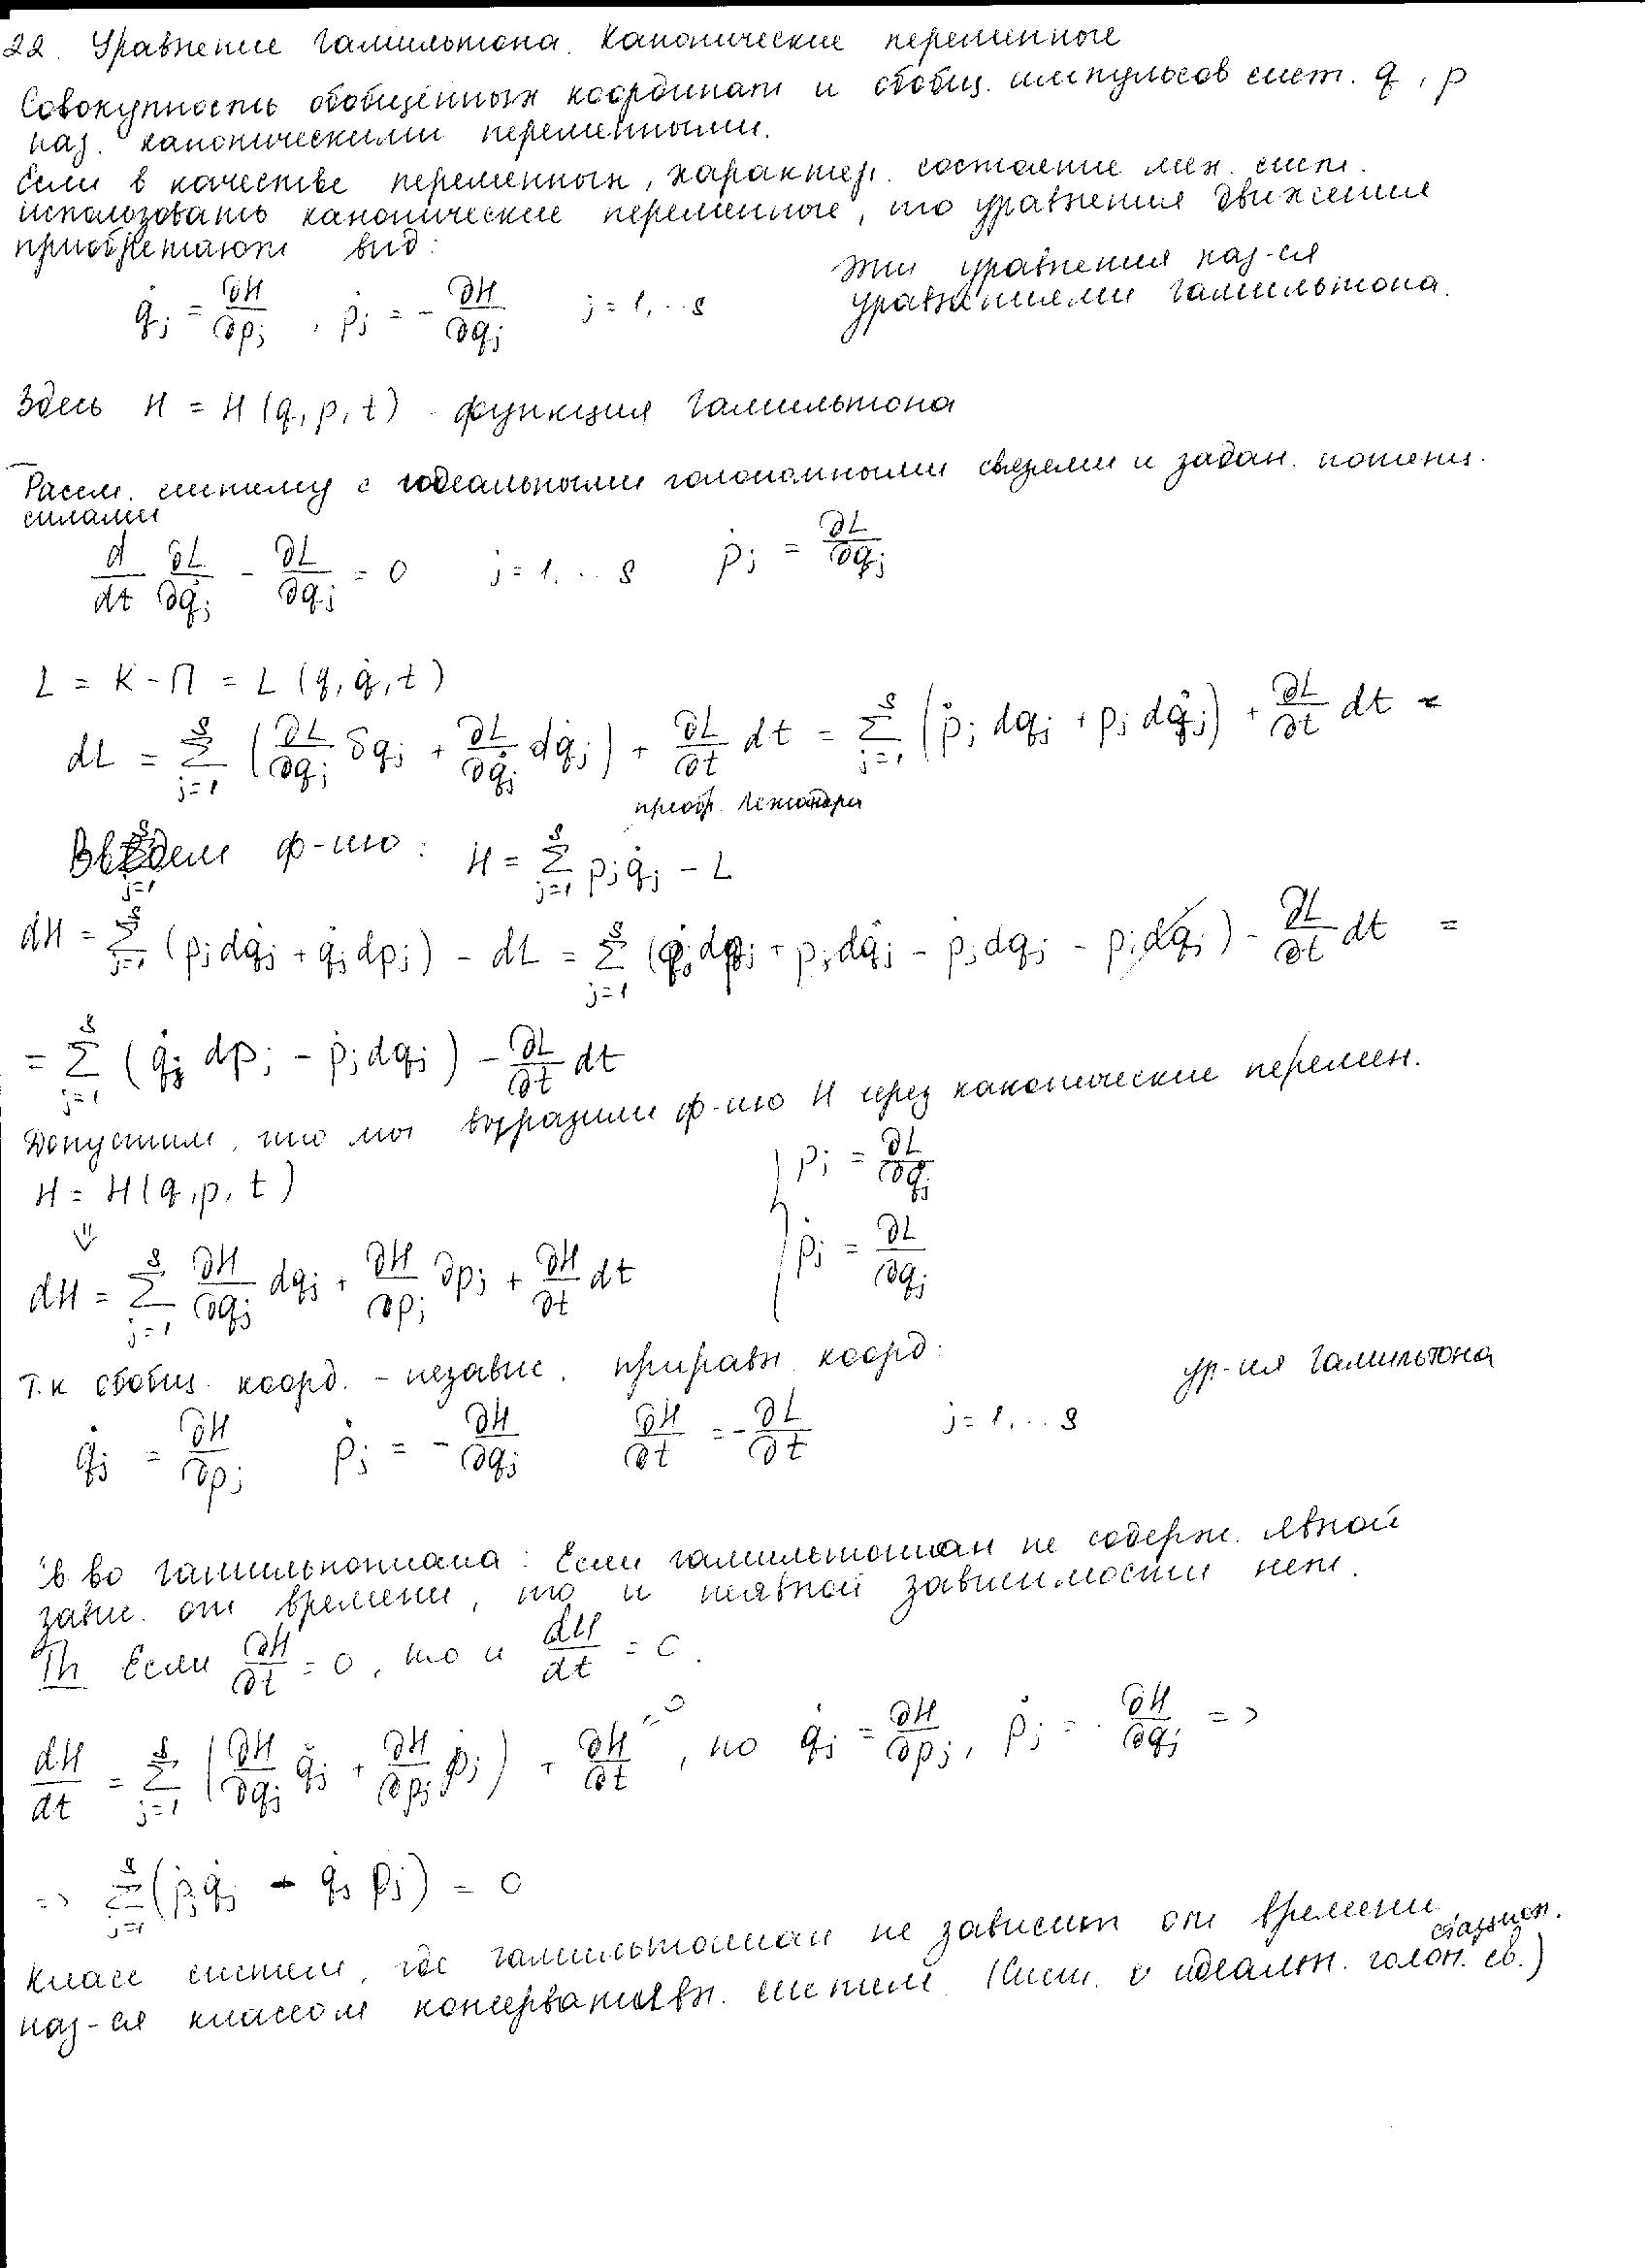 22. Уравнение Гамильтона. Канонические переменные
Совокупность обобщённых координат и обобщ. импульсов сист. q, p
наз. каноническими переменными.
Если в качестве переменных, характер. состояние мех. сист.
использовать канонические переменные, то уравнения движения
приобретают вид:
q̇ⱼ = ∂H/∂pⱼ , ṗⱼ = - ∂H/∂qⱼ j = 1, .. s
Эти уравнения наз-ся
уравнениями Гамильтона.
Здесь H = H(q, p, t) - функция Гамильтона
Рассм. систему с идеальными голономными связями и задан. потенц.
силами
d/dt ∂L/∂q̇ⱼ - ∂L/∂qⱼ = 0 j = 1, .. s ṗⱼ = ∂L/∂qⱼ
L = K - П = L(q, q̇, t)
dL = Σⱼ₌₁ˢ (∂L/∂qⱼ δqⱼ + ∂L/∂q̇ⱼ dq̇ⱼ) + ∂L/∂t dt = Σⱼ₌₁ˢ (ṗⱼ dqⱼ + pⱼ dq̇ⱼ) + ∂L/∂t dt =
преобр. Лежандра
Введем ф-ию: H = Σⱼ₌₁ˢ pⱼq̇ⱼ - L
dH = Σⱼ₌₁ˢ (pⱼdq̇ⱼ + q̇ⱼdpⱼ) - dL = Σⱼ₌₁ˢ (q̇ⱼdpⱼ + pⱼdq̇ⱼ - ṗⱼdqⱼ - pⱼdq̇ⱼ) - ∂L/∂t dt =
= Σⱼ₌₁ˢ (q̇ⱼ dpⱼ - ṗⱼdqⱼ) - ∂L/∂t dt
Допустим, что мы выразили ф-ию H через канонические перемен.
H = H(q, p, t)
pⱼ = ∂L/∂q̇ⱼ
⇓
ṗⱼ = ∂L/∂qⱼ
dH = Σⱼ₌₁ˢ ∂H/∂qⱼ dqⱼ + ∂H/∂pⱼ ∂pⱼ + ∂H/∂t dt
Т.к обобщ. коорд. - независ. приравн. коорд:
ур-ия Гамильтона
q̇ⱼ = ∂H/∂pⱼ ṗⱼ = - ∂H/∂qⱼ ∂H/∂t = - ∂L/∂t j = 1, .. s
Св во гамильтониана: Если гамильтониан не содерж. явной
завис. от времени, то и неявной зависимости нет.
Th Если ∂H/∂t = 0, то и dH/dt = 0.
dH/dt = Σⱼ₌₁ˢ (∂H/∂qⱼ q̇ⱼ + ∂H/∂pⱼ ṗⱼ) + ∂H/∂t = 0, но q̇ⱼ = ∂H/∂pⱼ, ṗⱼ = - ∂H/∂qⱼ =>
=> Σⱼ₌₁ˢ (ṗⱼq̇ⱼ - q̇ⱼ ṗⱼ) = 0
Класс систем, где гамильтониан не зависит от времени
стацион.
наз-ся классом консервативн. систем. (Сист. с идеальн. голон. св.)